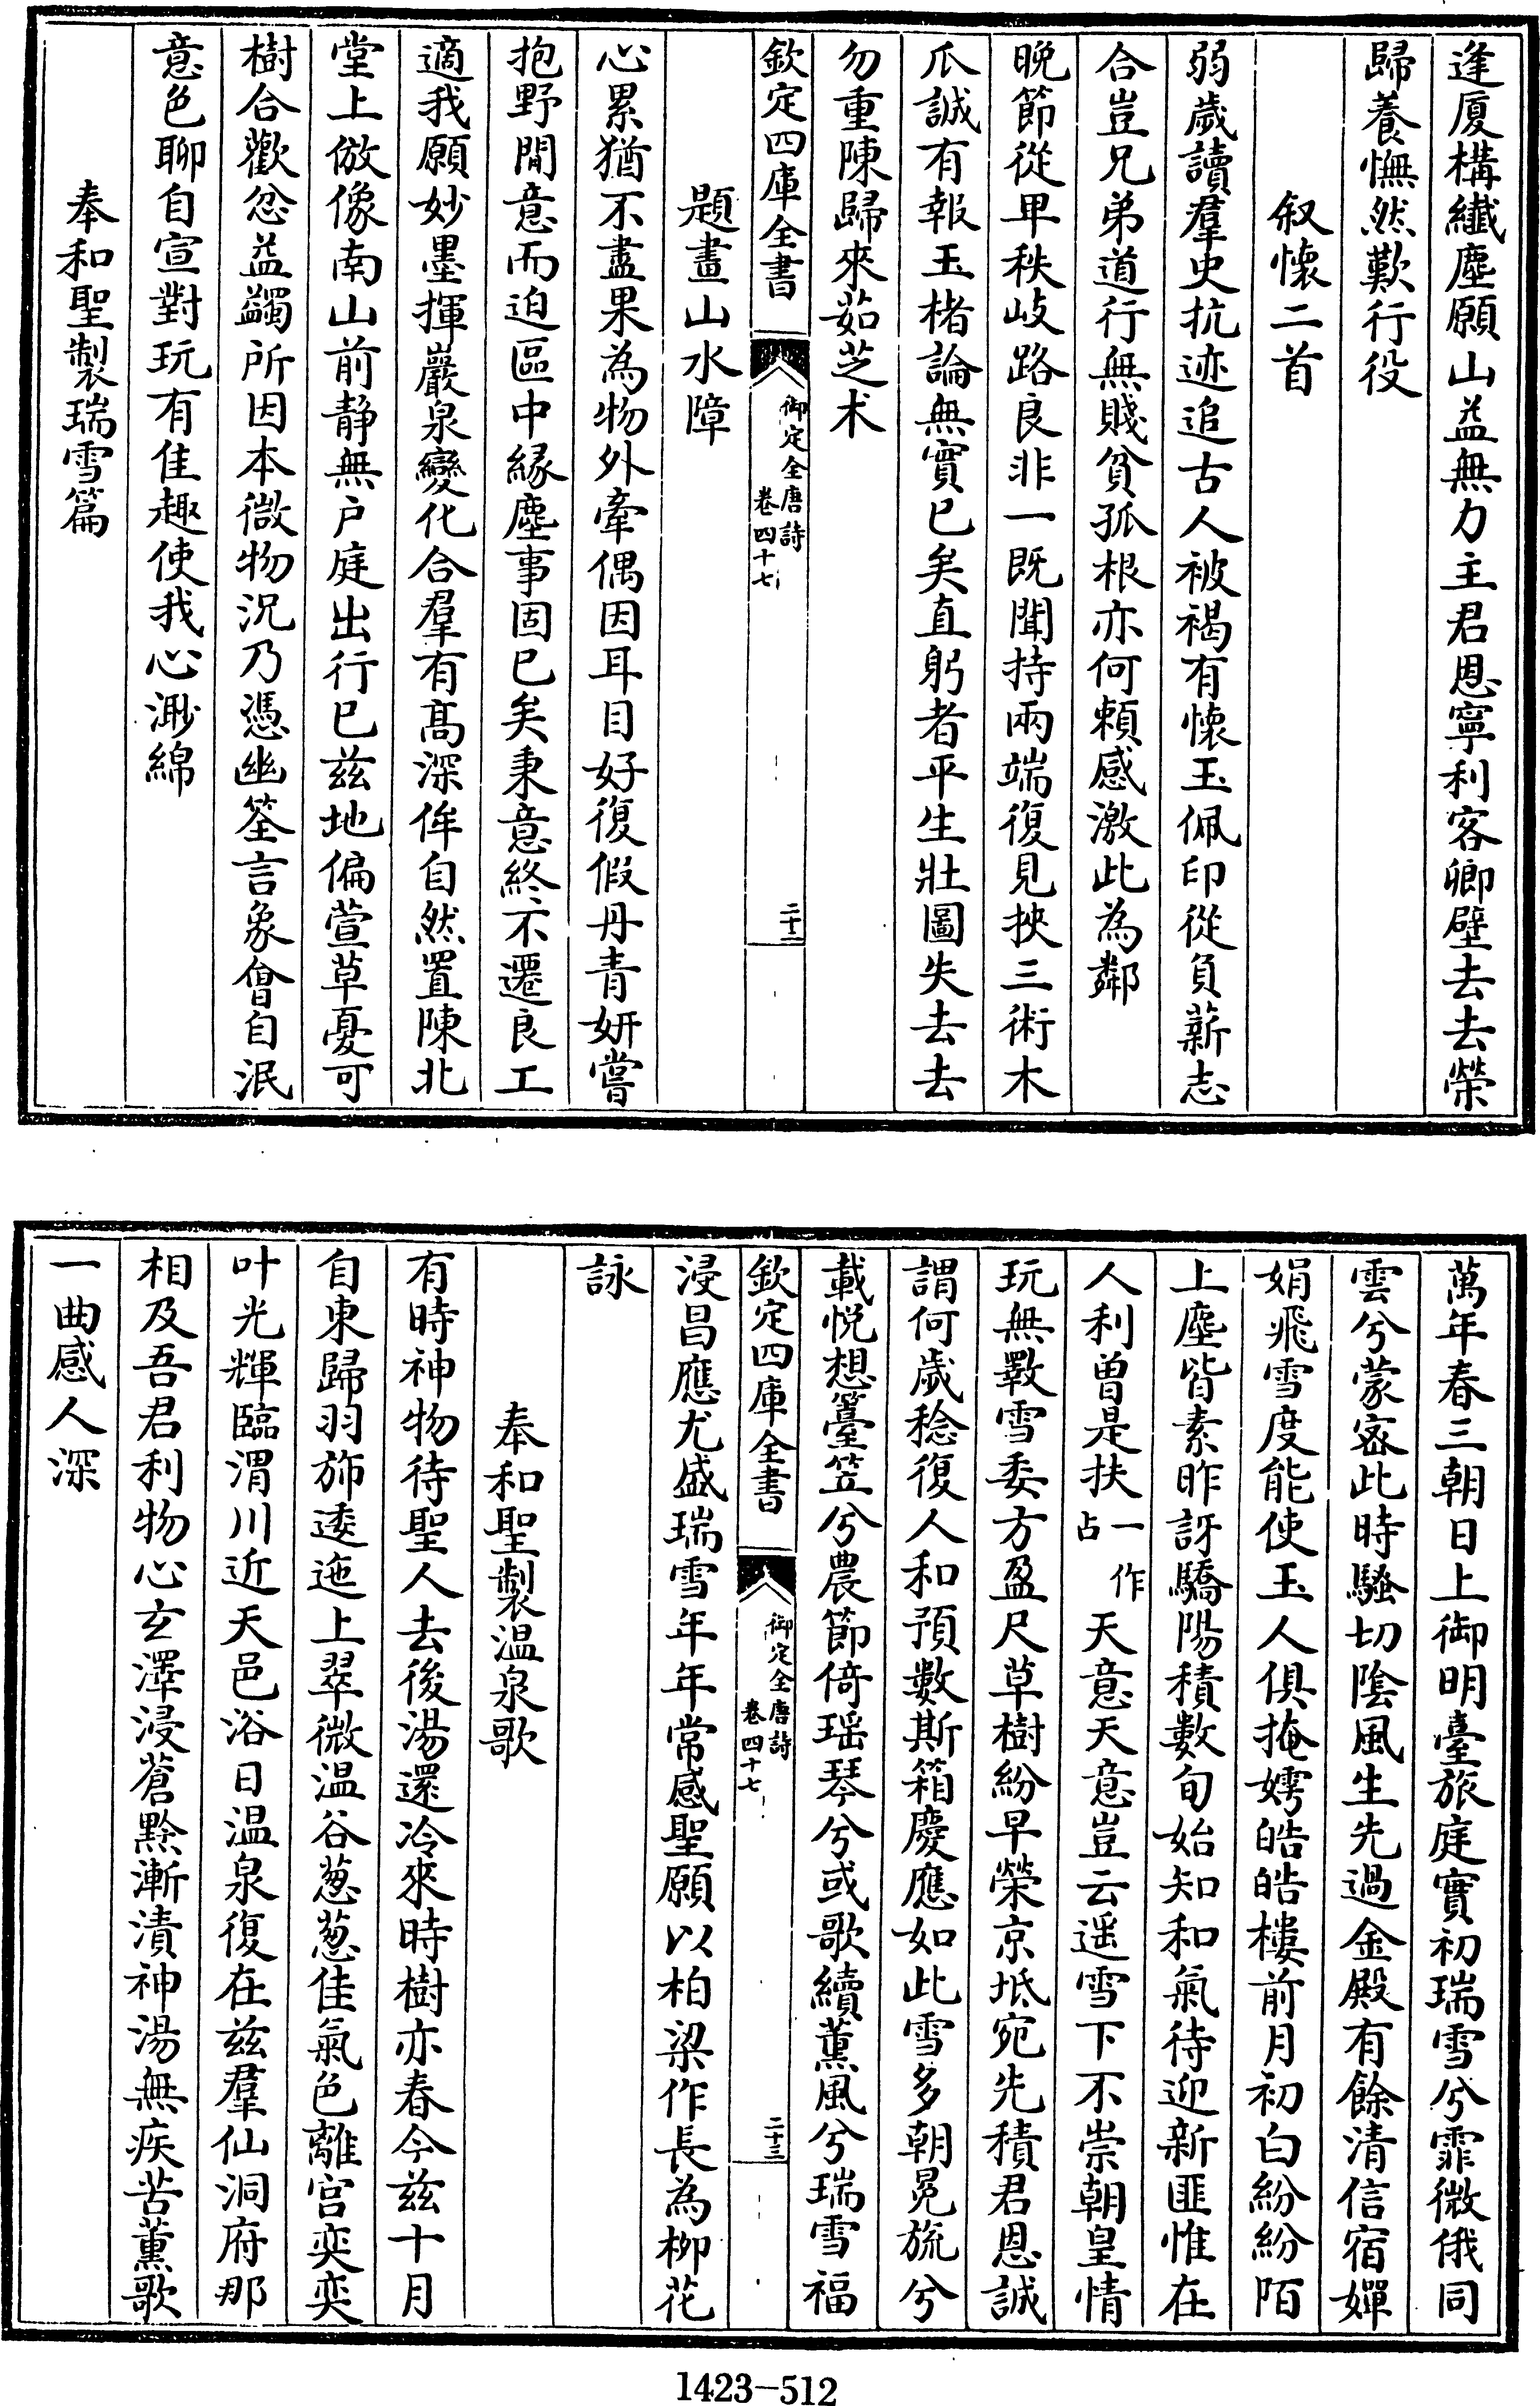 逢厦構纎塵願山益無力主君恩寧利客卿壁去去榮
歸養憮然歎行役
叙懷二首
弱歳讀羣史抗迹追古人被褐有懷玉佩印從負薪志
合豈兄弟道行無賤貧孤根亦何頼感激此為鄰
晚節從甲秩岐路良非一既聞持兩端復見挾三術木
瓜誠有報玉楮論無實已矣直躬者平生壯圖失去去
勿重陳歸來茹芝术
欽定四庫全書
御定全唐詩
卷四十七
二十二
題畫山水障
心累猶不盡果為物外牽偶因耳目好復假丹青妍嘗
抱野閒意而迫區中緣塵事固已矣秉意終不遷良工
適我願妙墨揮巖泉變化合羣有高深侔自然置陳北
堂上倣像南山前静無户庭出行已兹地偏萱草憂可
樹合歡忿益蠲所因本微物况乃憑幽筌言象會自泯
意色聊自宣對玩有佳趣使我心渺綿
奉和聖製瑞雪篇
萬年春三朝日上御明臺旅庭實初瑞雪兮霏微俄同
雲兮蒙宻此時騷切陰風生先過金殿有餘清信宿嬋
娟飛雪度能使玉人俱掩嫮皓皓樓前月初白紛紛陌
上塵皆素昨訝驕陽積數旬始知和氣待迎新匪惟在
人利曽是扶一作占天意天意豈云遥雪下不崇朝皇情
玩無斁雪委方盈尺草樹紛早榮京坻宛先積君恩誠
謂何歳稔復人和預數斯箱慶應如此雪多朝冕旒兮
載悦想籉笠兮農節倚瑶琴兮或歌續薫風兮瑞雪福
欽定四庫全書
御定全唐詩
卷四十七
二十三
浸昌應尤盛瑞雪年年常感聖願以柏梁作長為柳花
詠
奉和聖製温泉歌
有時神物待聖人去後湯還冷來時樹亦春今兹十月
自東歸羽斾逶迤上翠微温谷葱葱佳氣色離宫奕奕
叶光輝臨渭川近天邑浴日温泉復在兹羣仙洞府那
相及吾君利物心玄澤浸蒼黔漸漬神湯無疾苦薫歌
一曲感人深
1423-512